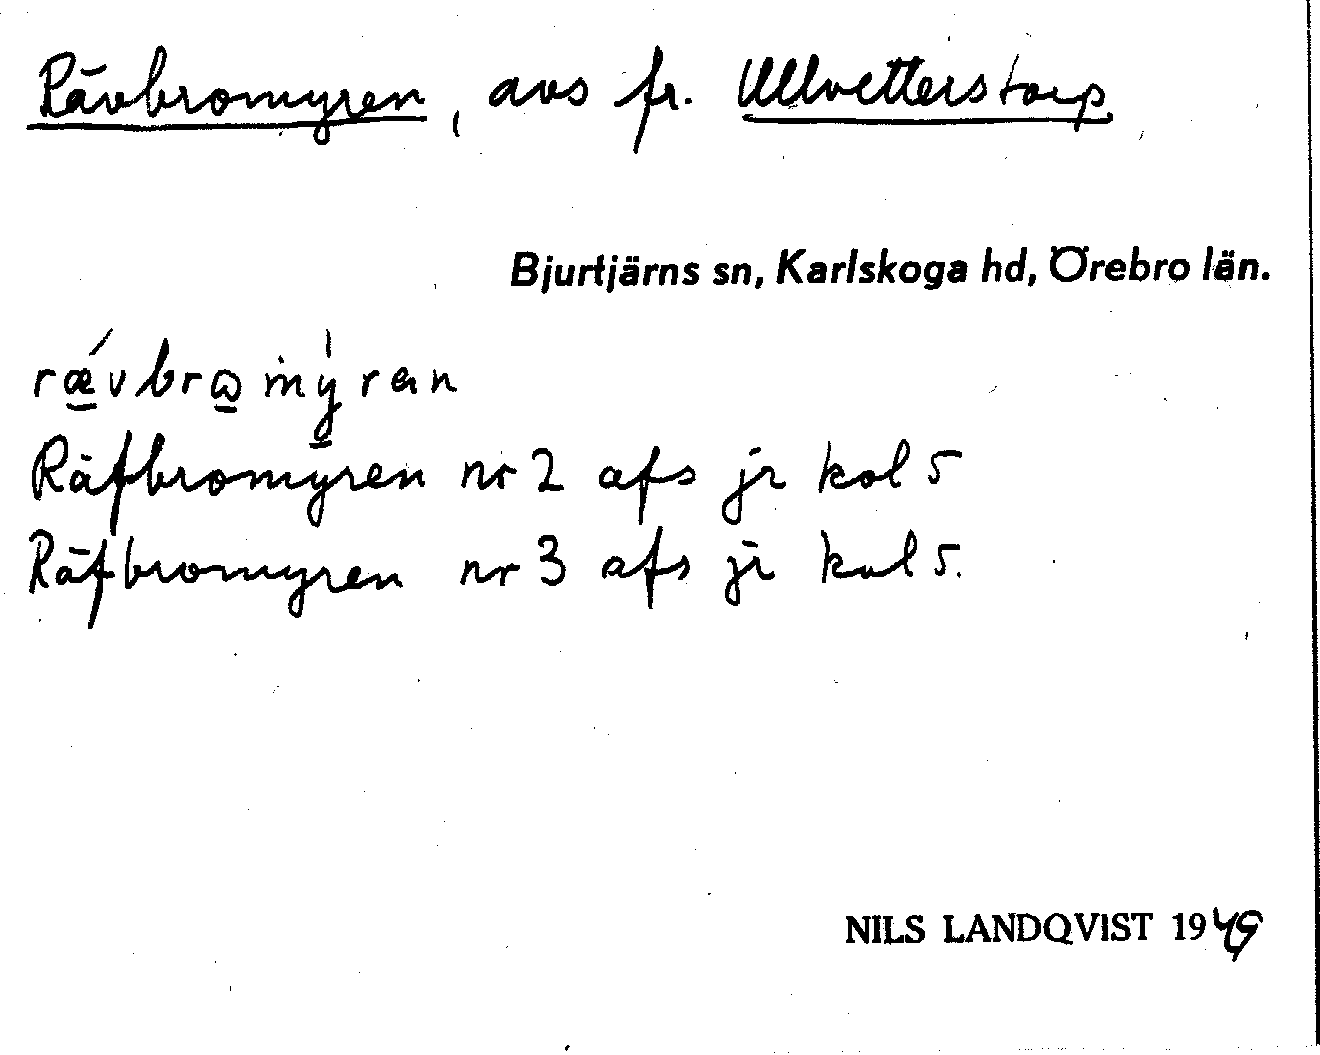 Rävbromyren, avs fr. Ullvetterstorp
Bjurtjärns sn, Karlskoga hd, Örebro län.
Räfbromyren nr 2 afs jr kol 5
Räfbromyren nr 3 afs jr kol 5.
NILS LANDQVIST 1949